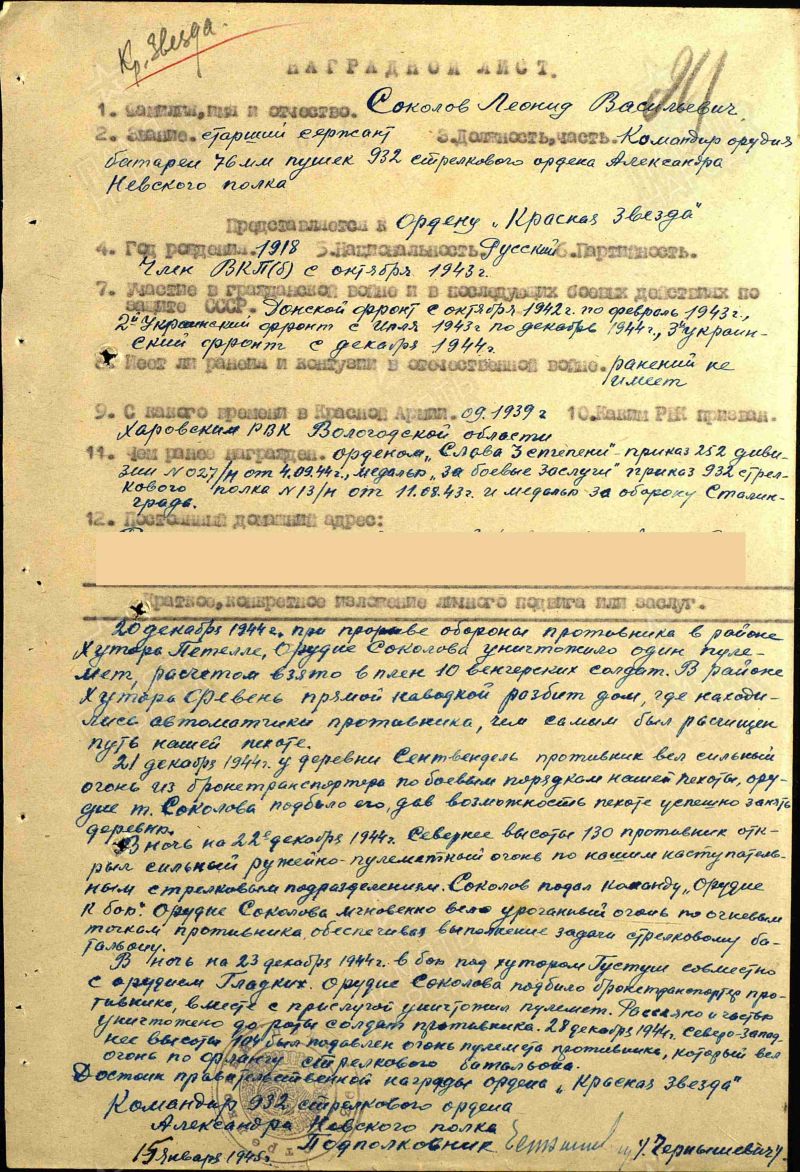 Кр. Звезда.
НАГРАДНОЙ ЛИСТ.
1. Фамилия, имя и отчество. Соколов Леонид Васильевич.
2. Звание. старший сержант 3. Должность, часть. Командир орудия
батареи 76мм пушек 932 стрелкового ордена Александра
Невского полка
Представляется к Ордену „Красная Звезда"
4. Год рождения. 1918 5. Национальность. Русский 6. Партийность.
Член ВКП(б) с октября 1943г.
7. Участие в гражданской войне и в последующих боевых действиях по
защите СССР. Донской фронт с октября 1942г. по февраль 1943г.,
2й Украинский фронт с июля 1943г по декабрь 1944г., 3й Украин-
ский фронт с декабря 1944г.
8. Имеет ли ранения и контузии в отечественной войне. ранений не
имеет
9. С какого времени в Красной Армии. 09.1939г 10. Каким РВК призван.
Харовским РВК Вологодской области
11. Чем ранее награжден. орденом „Слава 3 степени" - приказ 252 диви-
зии N027/н от 4.09.44г., медалью „за боевые заслуги" приказ 932 стрел-
кового полка N13/н от 11.08.43г. и медалью за оборону Сталин-
града.
12. Постоянный домашний адрес:
Краткое, конкретное изложение личного подвига или заслуг.
20 декабря 1944г. при прорыве обороны противника в районе
Хутора Петелле, Орудие Соколова уничтожило один пуле-
мет, расчетом взято в плен 10 венгерских солдат. В районе
Хутора Февень прямой наводкой разбит дом, где находи-
лись автоматчики противника, чем самым был расчищен
путь нашей пехоте.
21 декабря 1944г. у деревни Сентвендель противник вел сильный
огонь из бронетранспортера по боевым порядкам нашей пехоты, ору-
дие т. Соколова подбило его, дав возможность пехоте успешно занять
деревню.
В ночь на 22е декабря 1944г. Севернее высоты 130 противник отк-
рыл сильный ружейно-пулеметный огонь по нашим наступатель-
ным стрелковым подразделениям. Соколов подал команду „Орудие
к бою". Орудие Соколова мгновенно вело ураганный огонь по огневым
точкам противника, обеспечивая выполнение задачи стрелковому ба-
тальону.
В ночь на 23 декабря 1944г. в бою под хутором Густуш совместно
с орудием Гладких. Орудие Соколова подбило бронетранспортер про-
тивника, вместе с прислугой уничтожил пулемет. Рассеяно и частью
уничтожено до роты солдат противника. 28 декабря 1944г. Северо-запад-
нее высоты был подавлен огонь пулемета противника, который вел
огонь по флангу стрелкового батальона.
Достоин правительственной награды ордена „Красная Звезда"
Командир 932 стрелкового ордена
Александра Невского полка
Подполковник /Чернышевич/
15 января 1945г.